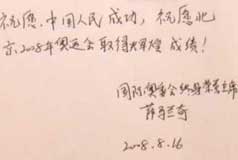 祝愿中国人民成功，祝愿北
京2008年奥运会取得大辉煌成绩！
国际奥委会终身荣誉主席
萨马兰奇
2008.8.16